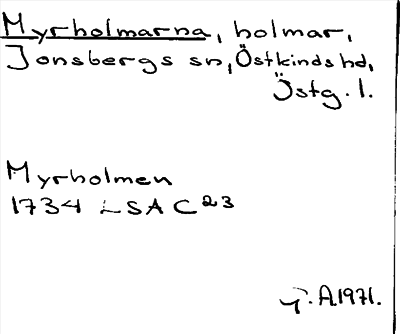 Myrholmarna, holmar,
Jonsbergs sn, Östkinds hd,
Östg. l.
Myrholmen
1734 LSA C23
A. 1971.